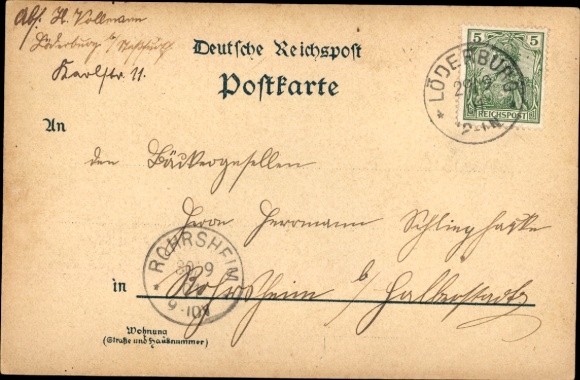 Abs. H. Vollmann
Löderburg b/ Staßfurt
Karlstr. 11.
Deutsche Reichspost
Postkarte
5 5
REICHSPOST
LÖDERBURG
29 9
12-1N
An
den Bäckergesellen
Herrn Herrmann Schliephacke
ROHRSHEIM
30 9
9-10V
in Rohrsheim b/ Halberstadt
Wohnung
(Straße und Hausnummer)